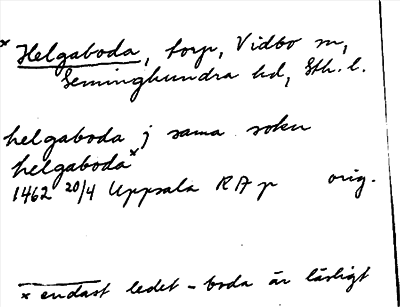 * Helgaboda, torp, Vidbo sn,
Seminghundra hd, Sth. l.
helgaboda j sama sokn
helgaboda*
1462 20/4 Uppsala RA p orig.
* endast ledet -boda är läsligt